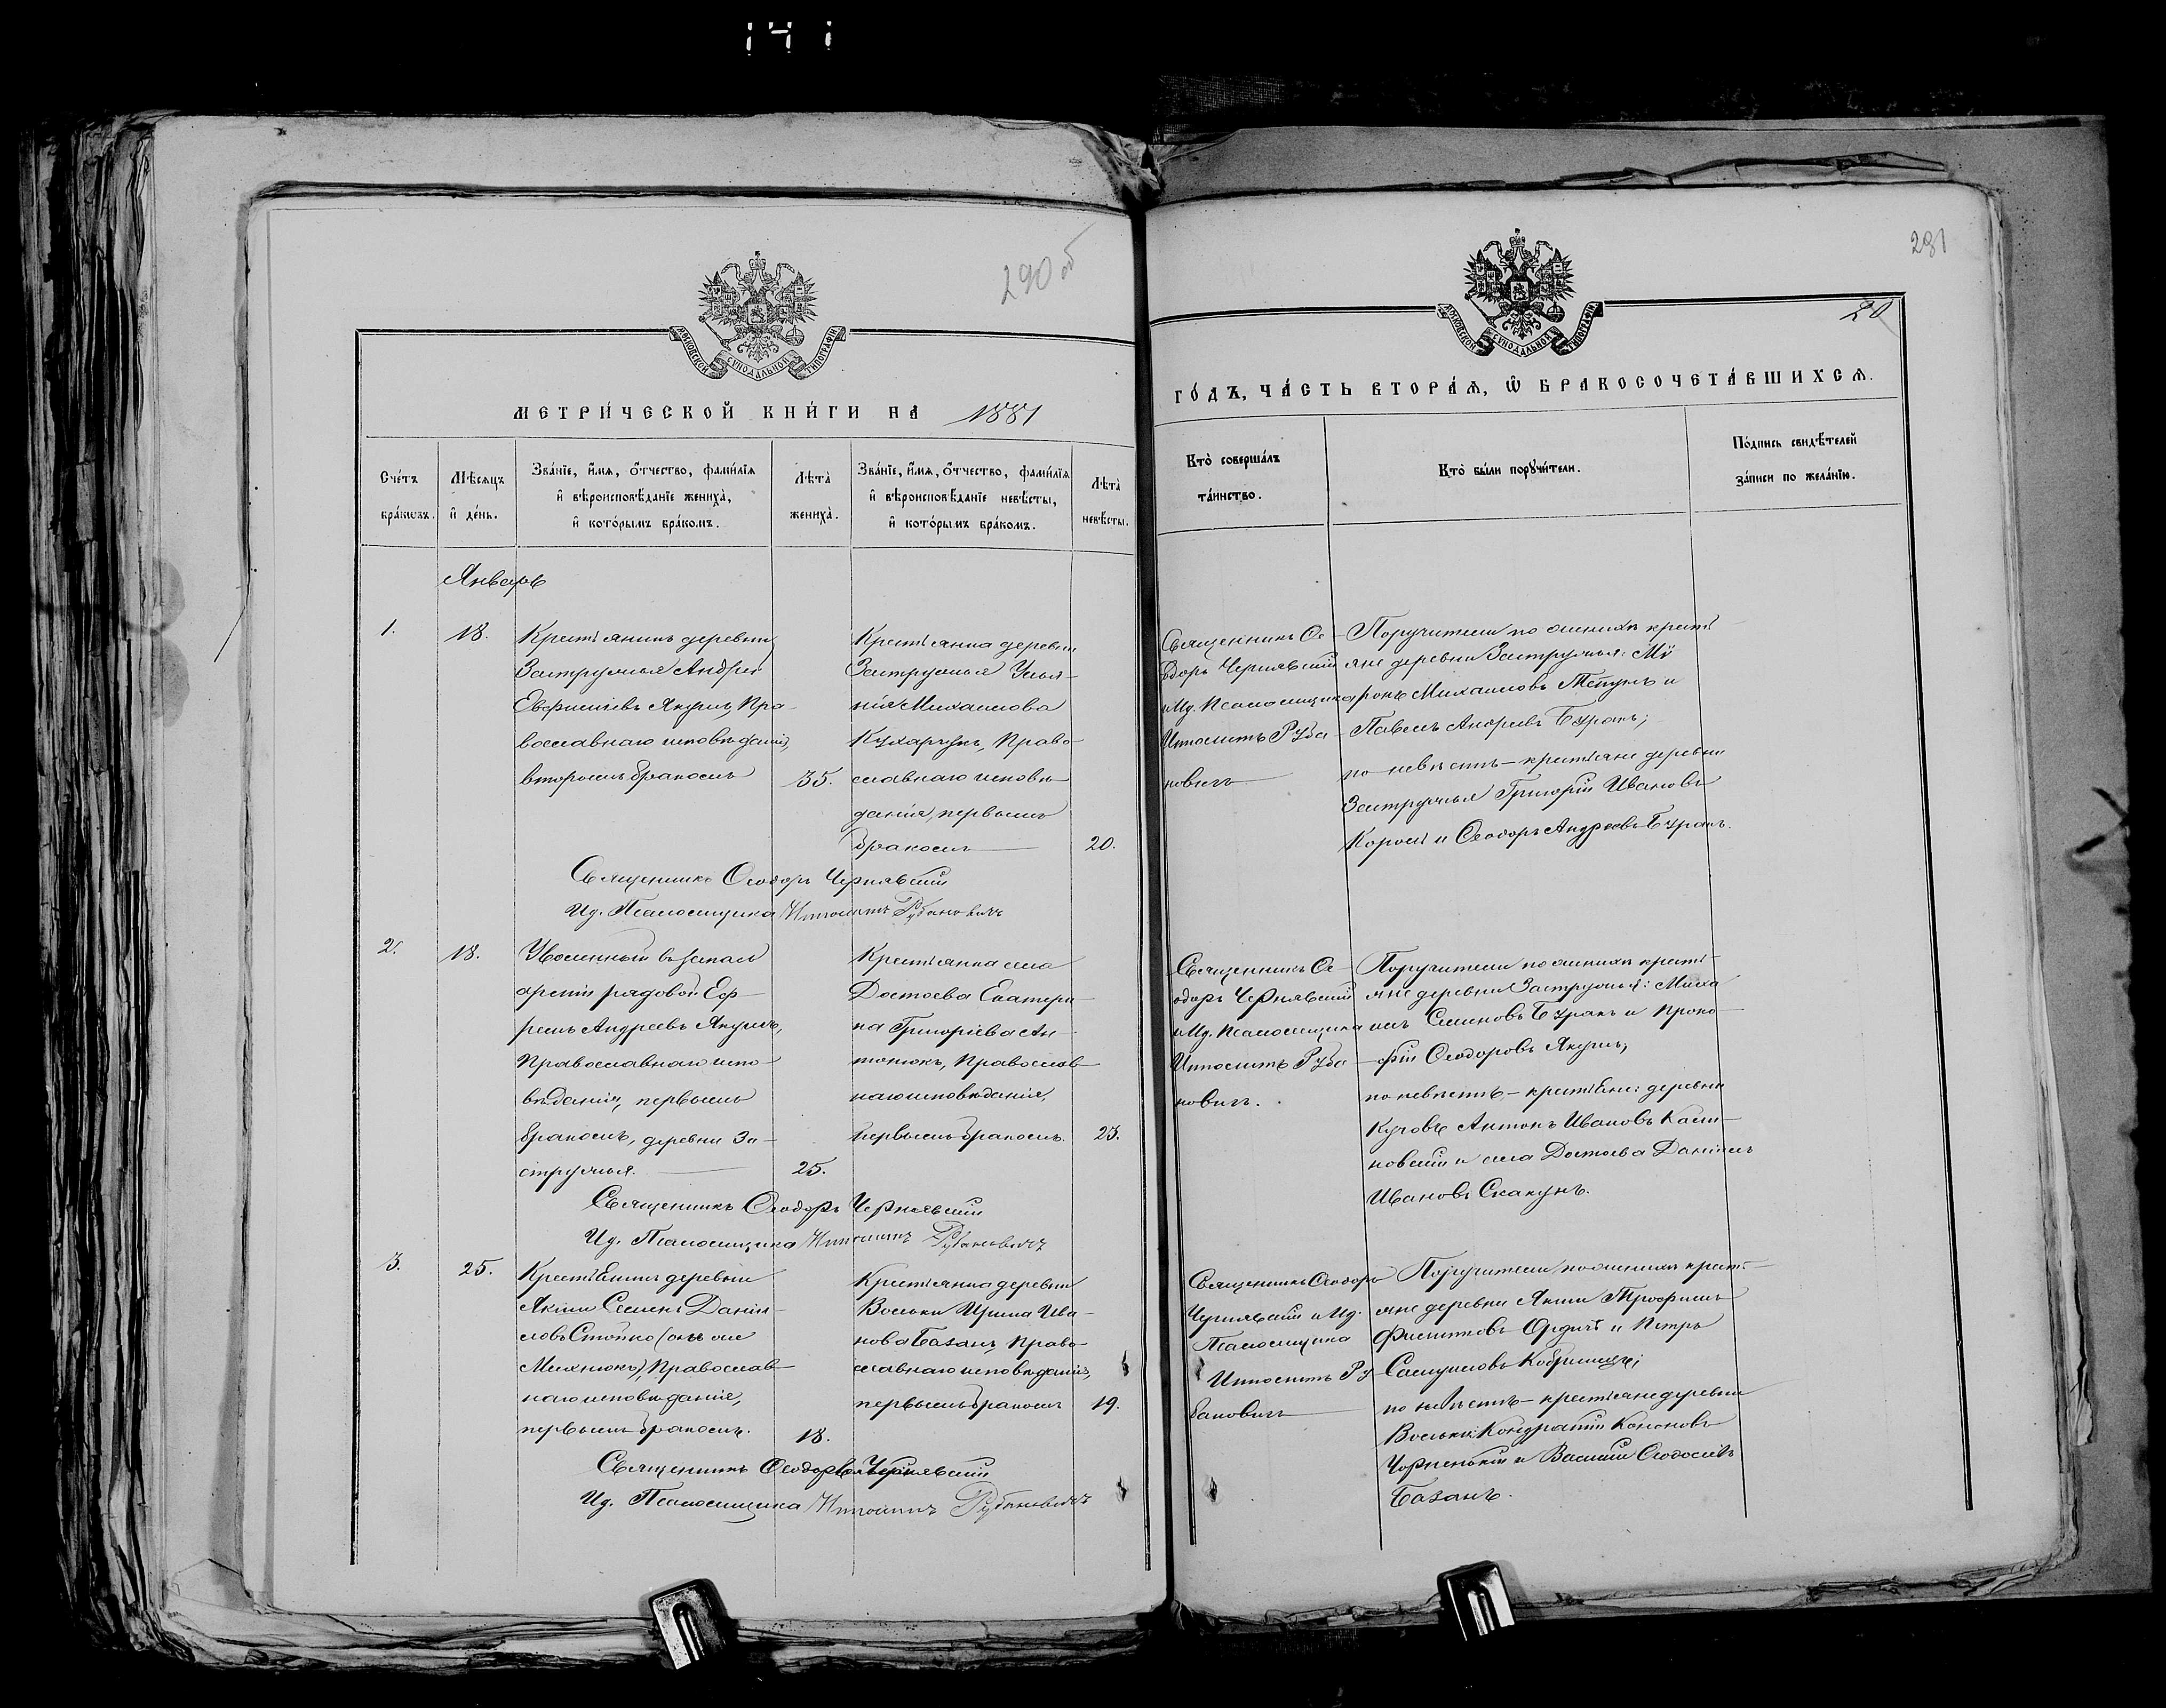 141
290 об
291
20
МОСКОВСКОЙ СѴНОДАЛЬНОЙ ТИПОГРАФІИ
МОСКОВСКОЙ СѴНОДАЛЬНОЙ ТИПОГРАФІИ
МЕТРИ́ЧЕСКОЙ КНИ́ГИ НА 1881
ГО́ДЪ, ЧА́СТЬ ВТОРА́Ѧ, Ѿ БРАКОСОЧЕТА́ВШИХСѦ.
Сче́тъ
бра́ковъ.
Мѣ́сѧцъ
и҆ де́нь.
Зва́нїе, и҆́мѧ, о҆́тчество, фами́лїѧ
и҆ вѣроисповѣ́данїе жениха̀,
и҆ кото́рымъ бра́комъ.
Лѣ́та̀
жениха̀.
Зва́нїе, и҆́мѧ, о҆́тчество, фами́лїѧ
и҆ вѣроисповѣ́данїе невѣ́сты,
и҆ кото́рымъ бра́комъ.
Лѣ́та̀
невѣ́сты.
Кто̀ соверша́лъ
та́инство.
Кто̀ бы́ли порꙋчи́тели.
По́дпись свидѣ́телей
за́писи по жела́нїю.
Январь
1.
18.
Крестьянинъ деревни
Заструмья Андрей
Евфиміевъ Якушъ, Пра-
вославнаго исповѣданія,
вторымъ бракомъ
35.
Крестьянка деревни
Заструмья Улья-
нія Михаилова
Кухарчукъ, Право-
славнаго исповѣ-
данія, первымъ
бракомъ
20.
Священникъ Ѳе-
одоръ Чернявскій
и Ид. Псаломщика
Ипполитъ Руба-
новичъ
Поручители по женихѣ кресть-
яне деревни Заструмья: Мѵ
ронъ Михаиловъ и
Павелъ Андреевъ Буракъ;
по невѣстѣ – крестьяне деревни
Заструмья Григорій Ивановъ
Король и Ѳеодоръ Андреевъ Буракъ.
Священникъ Ѳеодоръ Чернявскій
Ид. Псаломщика Ипполитъ Рубановичъ
2.
18.
Уволенный въ запасъ
арміи рядовой Еф-
ремъ Андреевъ Якушъ,
Православнаго испо-
вѣданія, первымъ
бракомъ, деревни За-
струмья.
25.
Крестьянка села
Достоева Екатери-
на Григоріева Ан-
тонюкъ, Православ-
наго исповѣданія,
первымъ бракомъ.
23.
Священникъ Ѳе-
одоръ Чернявскій
и Ид. Псаломщика
Ипполитъ Руба-
новичъ.
Поручители по женихѣ кресть-
яне деревни Заструмья: Миха
илъ Семеновъ Буракъ и Проко-
фій Ѳеодоровъ Якушъ;
по невѣстѣ – крестьяне: деревни
Антонъ Ивановъ
и села Достоева Даніилъ
Ивановъ Скакунъ.
Священникъ Ѳеодоръ Чернявскій
Ид. Псаломщика Ипполитъ Рубановичъ
3.
25.
Крестьянинъ деревни
Семенъ Даніи-
ловъ Стойко (онъ же
Михнюкъ), Православ-
наго исповѣданія,
первымъ бракомъ.
18.
Крестьянка деревни
Вольки Ирина Ива-
нова Базанъ, Право-
славнаго исповѣданія,
первымъ бракомъ
19.
Священникъ Ѳеодоръ
Чернявскій и Ид.
Псаломщика
Ипполитъ Ру-
бановичъ
Поручители по женихѣ кресть-
яне деревни Трофимъ
Филиповъ и Петръ
Самуиловъ Кобринецъ;
по невѣстѣ – крестьяне деревни
Вольки: Кондратій Кононовъ
Чорненькій и Василій Ѳеодосіевъ
Базанъ.
Священникъ Ѳеодоръ Чернявскій
Ид. Псаломщика Ипполитъ Рубановичъ